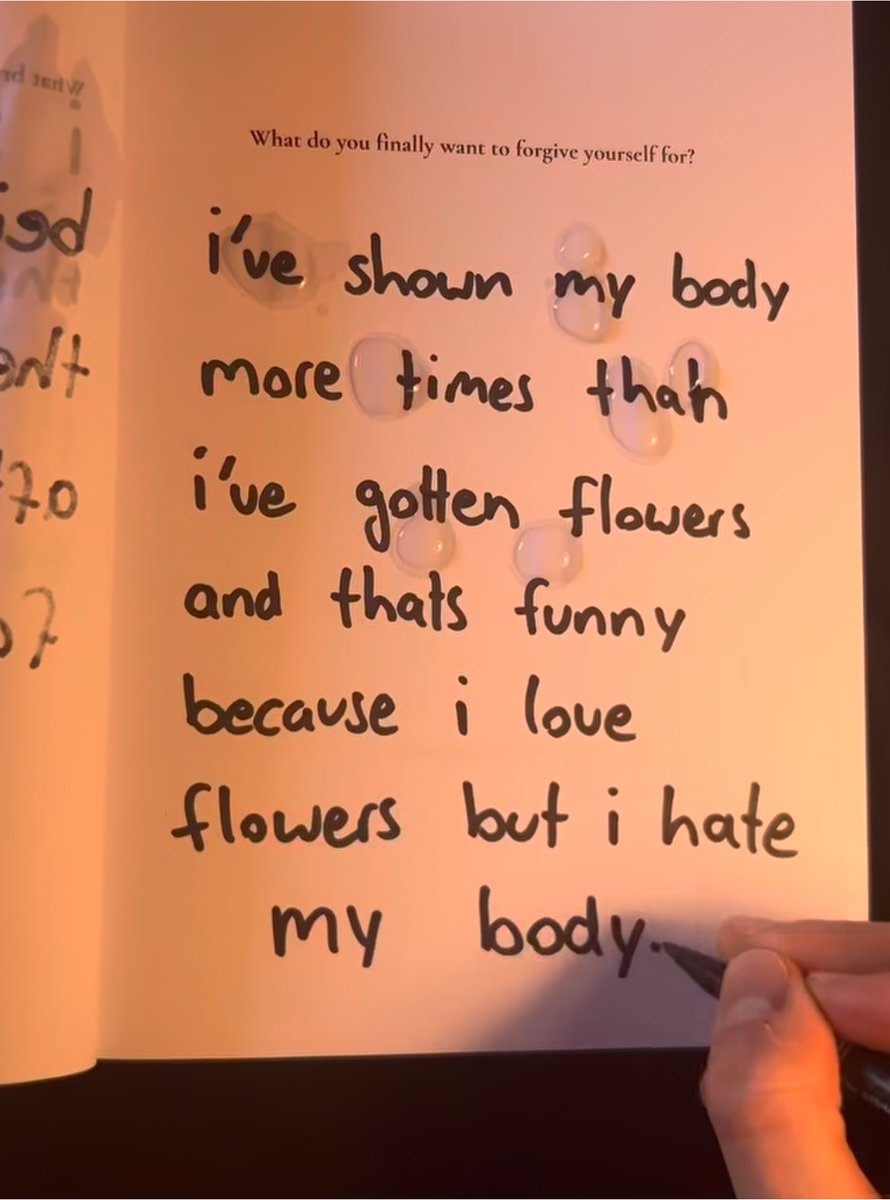 What do you finally want to forgive yourself for?
i've shown my body
more times than
i've gotten flowers
and thats funny
because i love
flowers but i hate
my body.